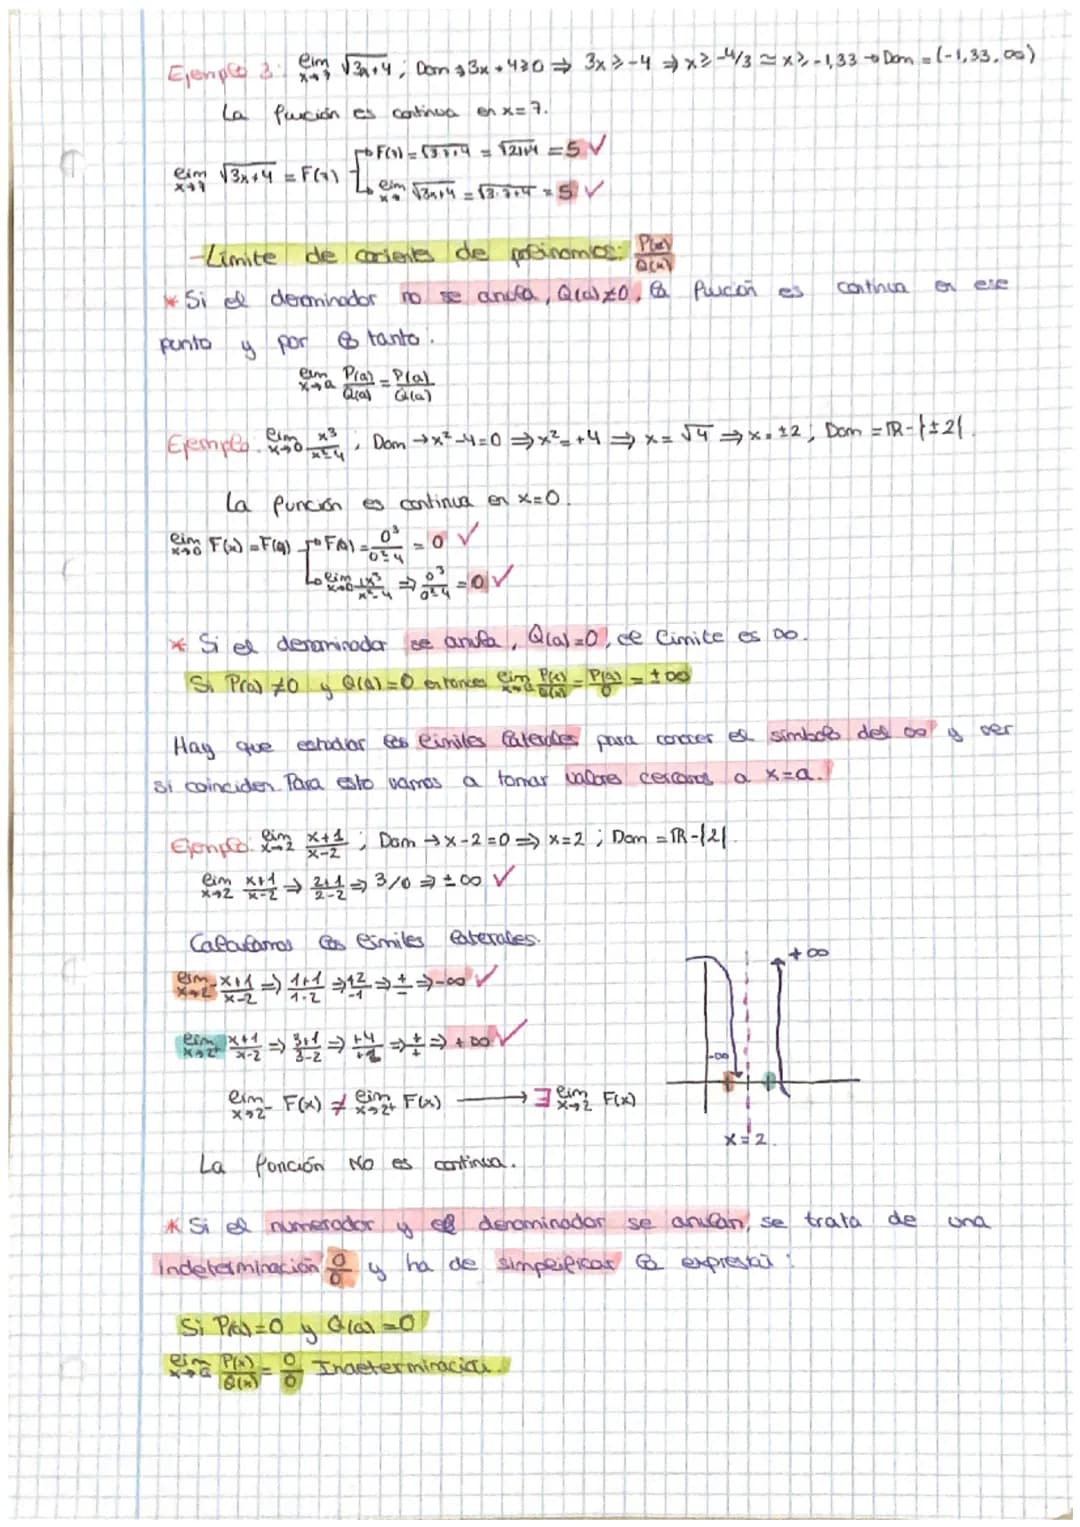 Ejemplo 3: lim x→7 √3x+4 ; Dom → 3x+4≥0 ⇒ 3x ≥ -4 ⇒ x ≥ -4/3 ≃ x ≥ -1,33 → Dom = (-1,33, ∞)
La función es continua en x=7.
F(7) = √3·7+4 = √21+4 = 5 ✓
lim x→7 √3x+4 = F(7)
lim x→7 √3x+4 = √3·7+4 = 5 ✓
-Límite de cocientes de polinomios: P(x)/Q(x)
* Si el denominador no se anula, Q(a)≠0, la función es continua en ese
punto y por lo tanto:
lim x→a P(a)/Q(a) = P(a)/Q(a)
Ejemplo: lim x→0 x³/x²-4 , Dom → x²-4=0 ⇒ x²=+4 ⇒ x=√4 ⇒ x=±2 ; Dom = ℝ-{±2}.
La función es continua en x=0.
lim x→0 F(x) = F(a) F(0) = 0³/0²-4 = 0 ✓
lim x→0 x³/x²-4 ⇒ 0³/0²-4 = 0 ✓
* Si el denominador se anula, Q(a)=0, el límite es ∞.
Si P(a)≠0 y Q(a)=0 entonces lim x→a P(x)/Q(x) = P(a)/0 = ±∞
Hay que estudiar los límites laterales para conocer el símbolo del ∞ y ver
si coinciden. Para esto vamos a tomar valores cercanos a x=a.
Ejemplo: lim x→2 x+1/x-2 ; Dom → x-2=0 ⇒ x=2 ; Dom = ℝ-{2}.
lim x→2 x+1/x-2 ⇒ 2+1/2-2 ⇒ 3/0 ⇒ ±∞ ✓
Calculamos los límites laterales.
+∞
lim x→2⁻ x+1/x-2 ⇒ 1+1/1-2 ⇒ +2/-1 ⇒ +/- ⇒ -∞ ✓
lim x→2⁺ x+1/x-2 ⇒ 3+1/3-2 ⇒ +4/+1 ⇒ +/+ ⇒ +∞ ✓
-∞
lim x→2⁻ F(x) ≠ lim x→2⁺ F(x) → ∃ lim x→2 F(x)
x=2.
La función NO es continua.
* Si el numerador y el denominador se anulan, se trata de una
indeterminación 0/0 y ha de simplificar la expresión:
Si P(a)=0 y Q(a)=0
lim x→a P(x)/Q(x) = 0/0 Indeterminación.